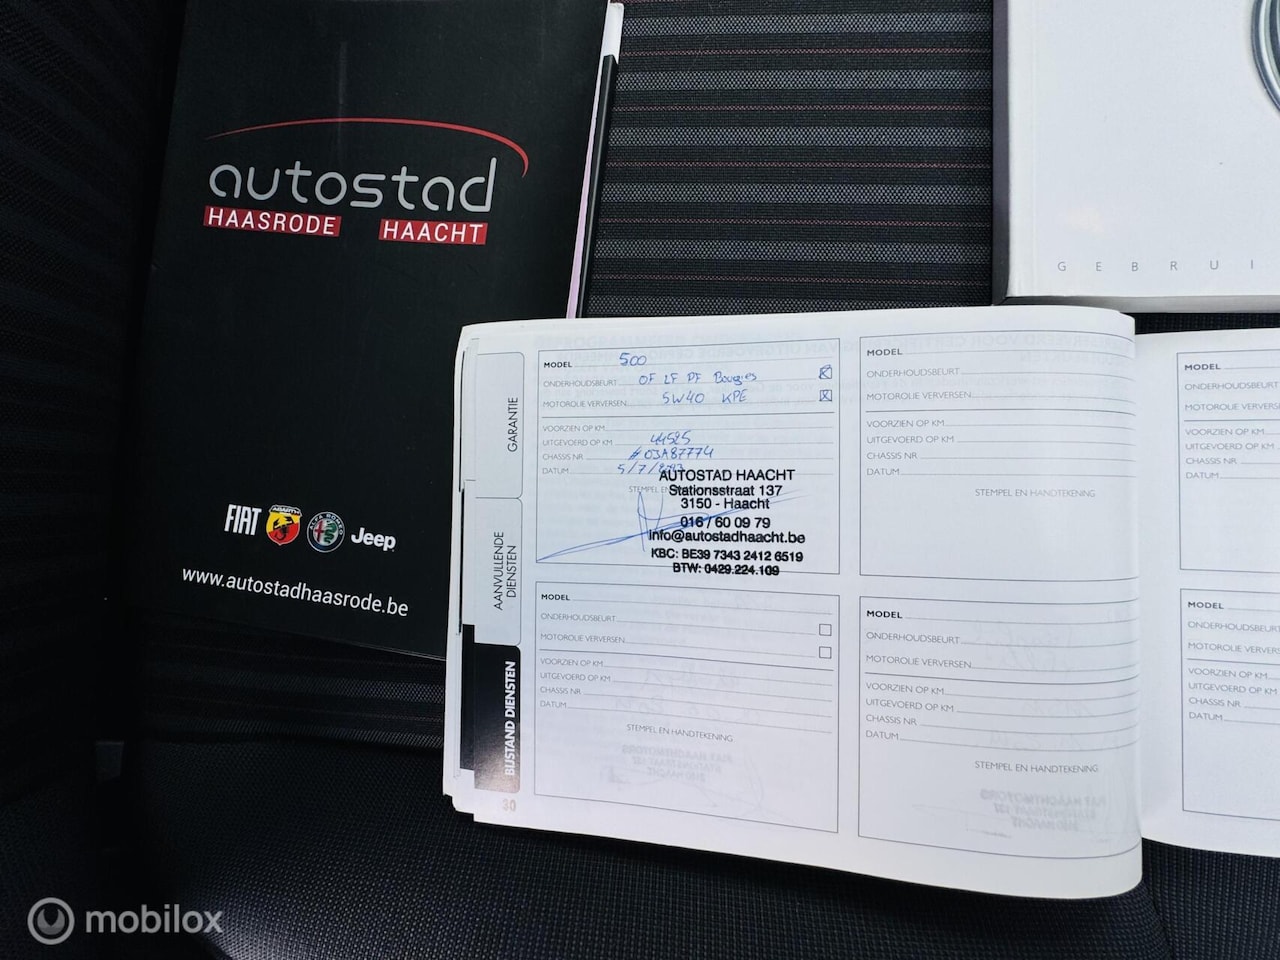 autostad
HAASRODE HAACHT
FIAT ABARTH ALFA ROMEO Jeep
www.autostadhaasrode.be
GEBRUI
GARANTIE
AANVULLENDE
DIENSTEN
BIJSTAND DIENSTEN
30
MODEL 500
ONDERHOUDSBEURT OF LF PF Bougies
MOTOROLIE VERVERSEN 5W40 KPE
VOORZIEN OP KM
UITGEVOERD OP KM 44525
CHASSIS NR #03A87774
DATUM 5/7/
STEMPEL EN
AUTOSTAD HAACHT
Stationsstraat 137
3150 - Haacht
016 / 60 09 79
info@autostadhaacht.be
KBC: BE39 7343 2412 6519
BTW: 0429.224.109
MODEL
ONDERHOUDSBEURT
MOTOROLIE VERVERSEN
VOORZIEN OP KM
UITGEVOERD OP KM
CHASSIS NR
DATUM
STEMPEL EN HANDTEKENING
MODEL
ONDERHOUDSBEURT
MOTOROLIE VERVERSEN
VOORZIEN OP KM
UITGEVOERD OP KM
CHASSIS NR
DATUM
STEMPEL EN HANDTEKENING
MODEL
ONDERHOUDSBEURT
MOTOROLIE VERVERSEN
VOORZIEN OP KM
UITGEVOERD OP KM
CHASSIS NR
DATUM
STEMPEL EN HANDTEKENING
MODEL
ONDERHOUDSBEURT
MOTOROLIE VERVERSE
VOORZIEN OP KM
UITGEVOERD OP KM
CHASSIS NR
DATUM
MODEL
ONDERHOUDSBEURT
MOTOROLIE VERVERSE
VOORZIEN OP KM
UITGEVOERD OP KM
CHASSIS NR
DATUM
mobilox